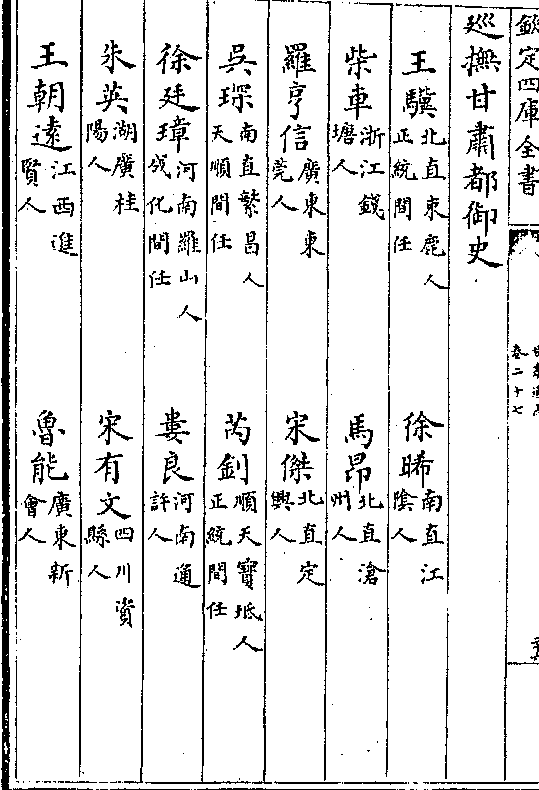 欽定四庫全書
卷二十七
巡撫甘肅都御史
王驥 北直束鹿人正統間任 徐晞 南直江陰人
柴車 浙江錢塘人 馬昂 北直滄州人
羅亨信 廣東東莞人 宋傑 北直定興人
吳琛 南直繁昌人天順間任 芮釗 順天寶坻人正統間任
徐廷璋 河南羅山人成化間任 婁良 河南通許人
朱英 湖廣桂陽人 宋有文 四川資縣人
王朝遠 江西進賢人 魯能 廣東新會人